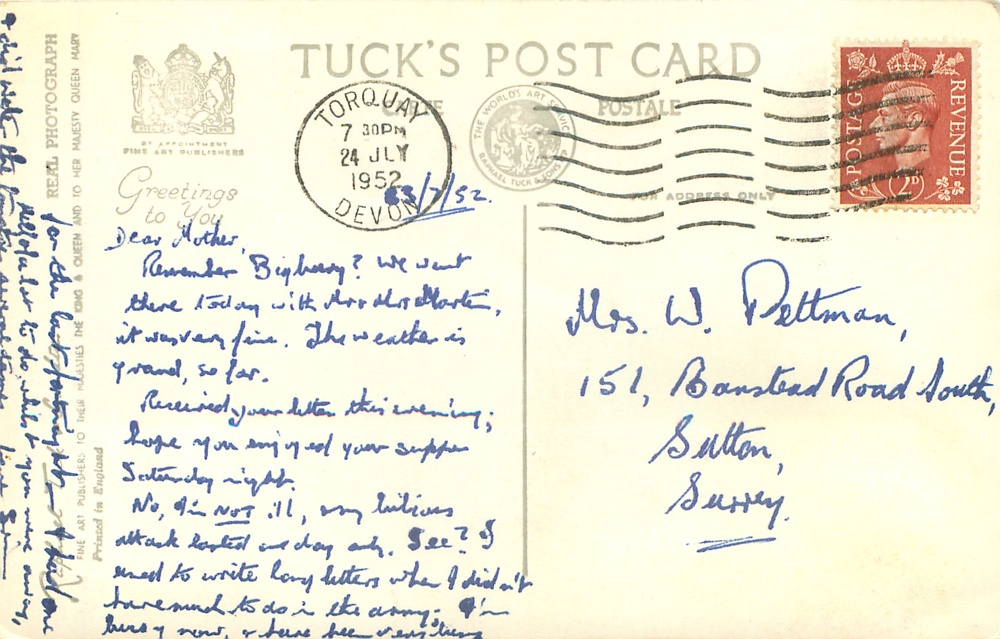 TUCK'S POST CARD
CARTE POSTALE
BY APPOINTMENT
FINE ART PUBLISHERS
THE WORLD'S ART SERVICE
RAPHAEL TUCK & SONS
TORQUAY
7 30PM
24 JLY
1952
DEVON
POSTAGE
REVENUE
2D
FOR ADDRESS ONLY
Greetings
to You
23/7/52.
Dear Mother,
Remember Bigbury? We went
there today with Mr & Mrs Martin,
it was very fine. The weather is
grand, so far.
Received your letter this evening;
hope you enjoyed your supper
Saturday night.
No, I'm NOT ill, my bilious
attack lasted one day only. See? I
used to write long letters when I didn't
have much to do in the army. I'm
busy now, & have been
for the last fortnight — I had one
lot to do, whilst you were away,
& did water the tomatoes several times.
Mrs. W. Pettman,
151, Banstead Road South,
Sutton,
Surrey.
REAL PHOTOGRAPH
FINE ART PUBLISHERS TO THEIR MAJESTIES THE KING & QUEEN AND TO HER MAJESTY QUEEN MARY
Printed in England